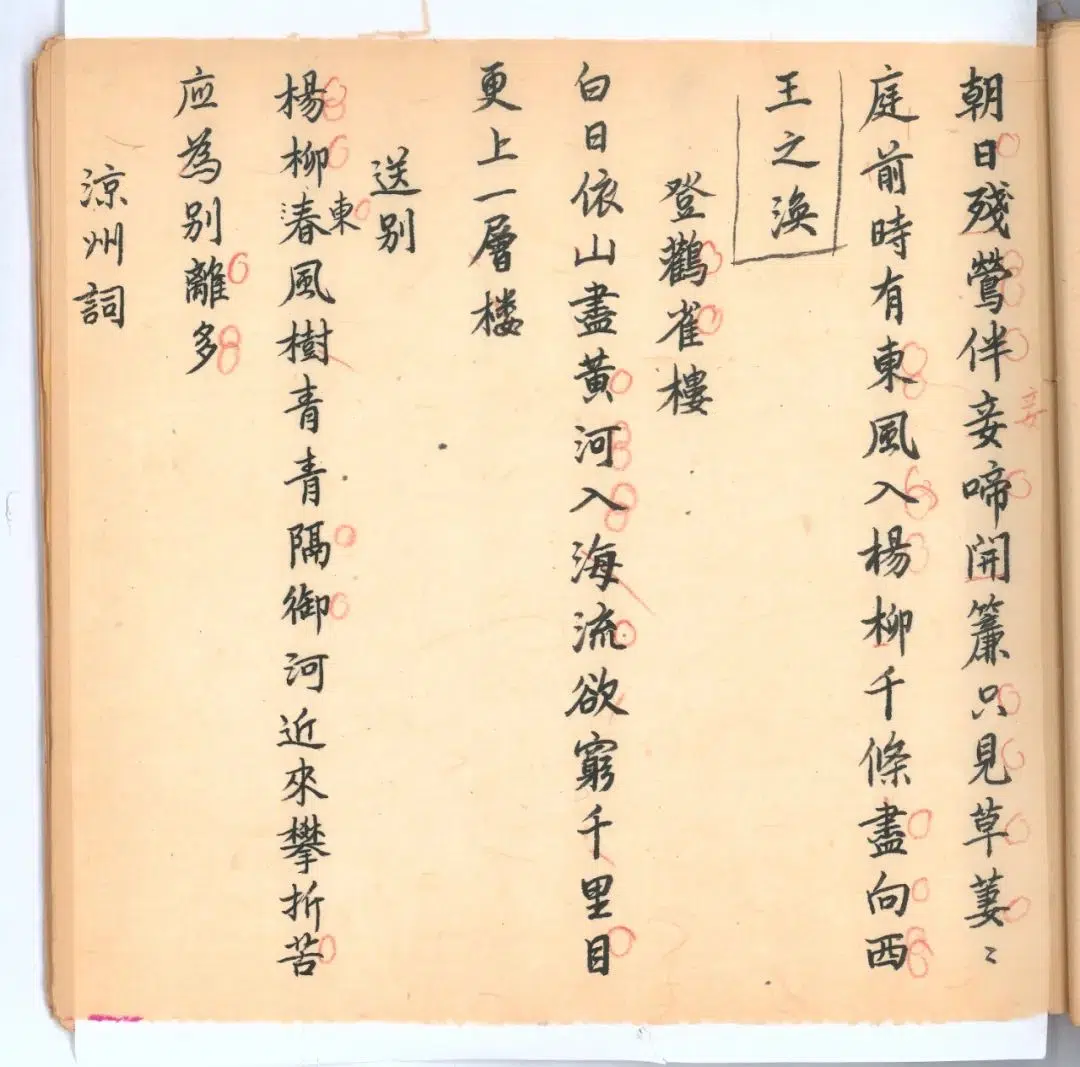 朝日殘鶯伴妾啼開簾只見草萋〻
庭前時有東風入楊柳千條盡向西
王之渙
登鸛雀樓
白日依山盡黃河入海流欲窮千里目
更上一層楼
送别
楊柳春風樹青青隔御河近來攀折苦
東
应為别離多
涼州詞
妾